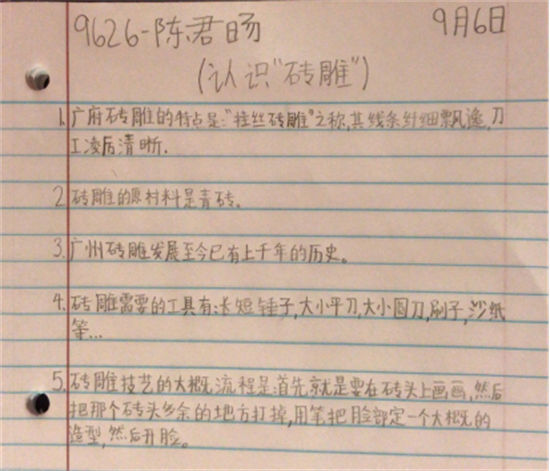 9626-陈君旸
9月6日
(认识"砖雕")
1. 广府砖雕的特点是:"挂丝砖雕"之称,其线条纤细飘逸,刀
工凌厉清晰.
2. 砖雕的原材料是青砖。
3. 广州砖雕发展至今已有上千年的历史。
4. 砖雕需要的工具有:长短锤子,大小平刀,大小圆刀,刷子,沙纸
等...
5. 砖雕技艺的大概流程是:首先就是要在砖头上画画,然后
把那个砖头多余的地方打掉,用笔把脸部定一个大概的
造型,然后开脸。